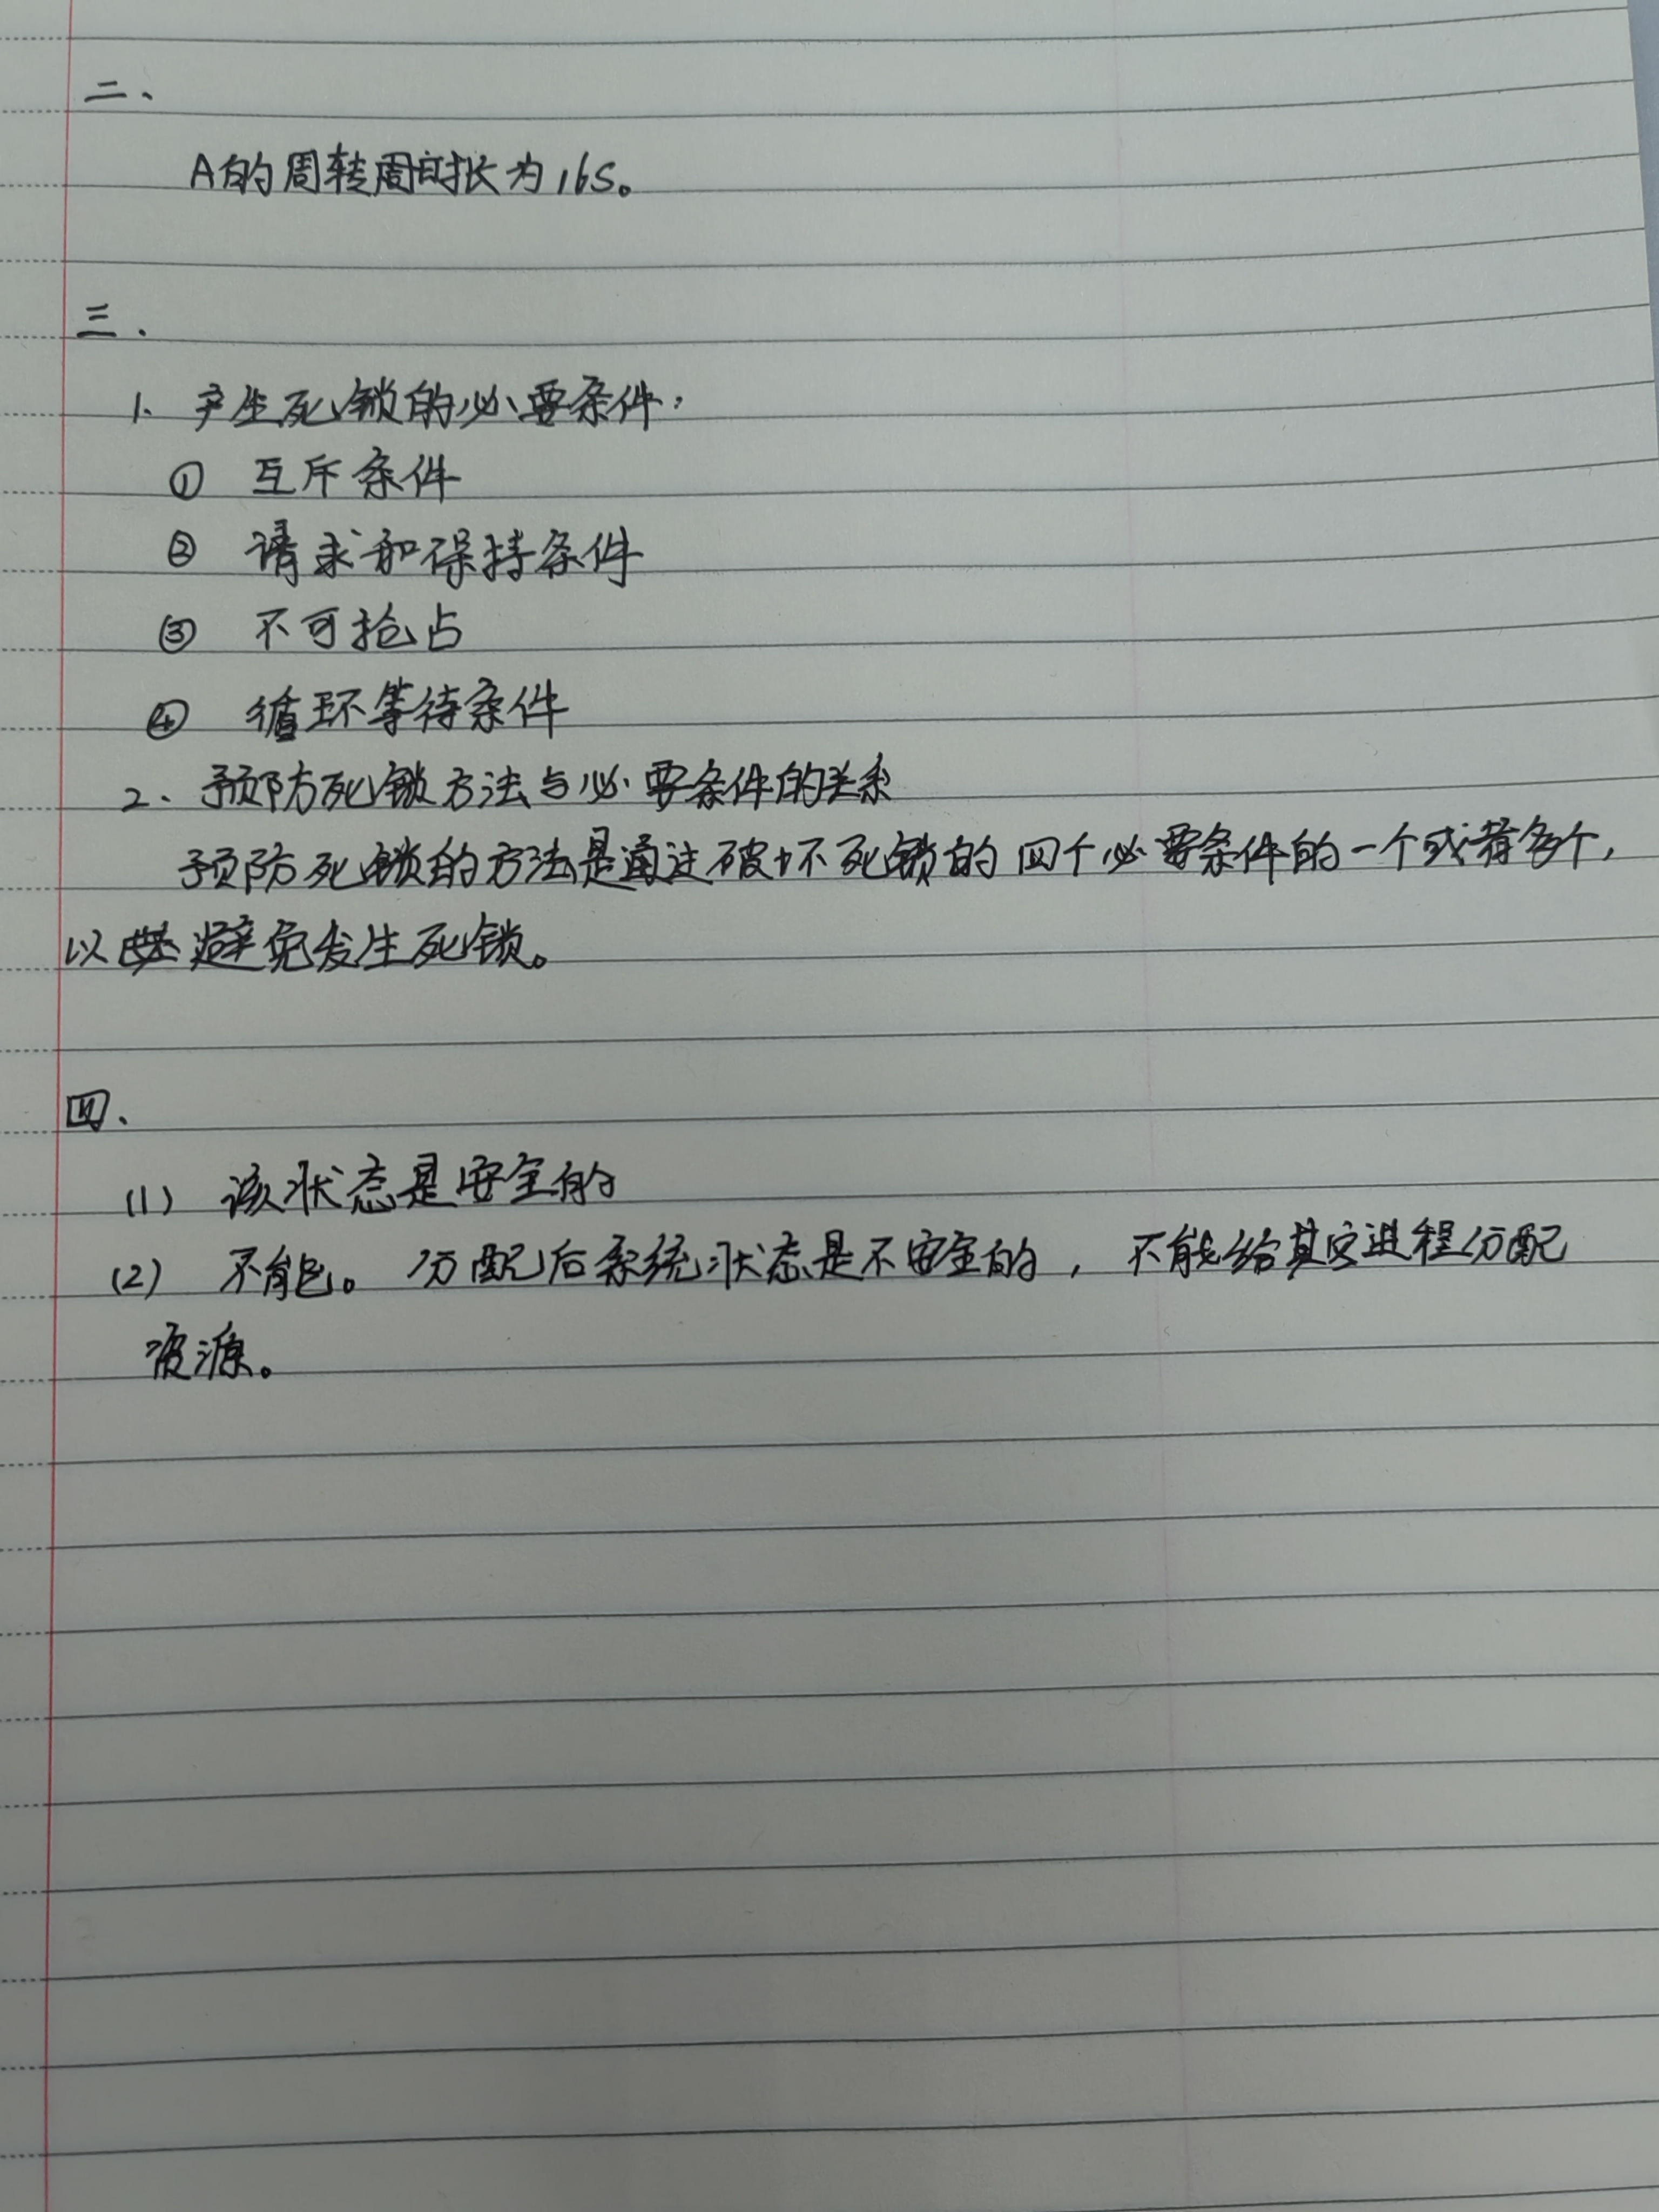 二、
A的周转周时长为16s。
三.
1. 产生死锁的必要条件:
① 互斥条件
② 请求和保持条件
③ 不可抢占
④ 循环等待条件
2. 预防死锁方法与必要条件的关系
预防死锁的方法是通过破坏死锁的四个必要条件的一个或者多个,
以避免发生死锁。
四.
(1) 该状态是安全的
(2) 不能。分配后系统状态是不安全的,不能给其它进程分配
资源。